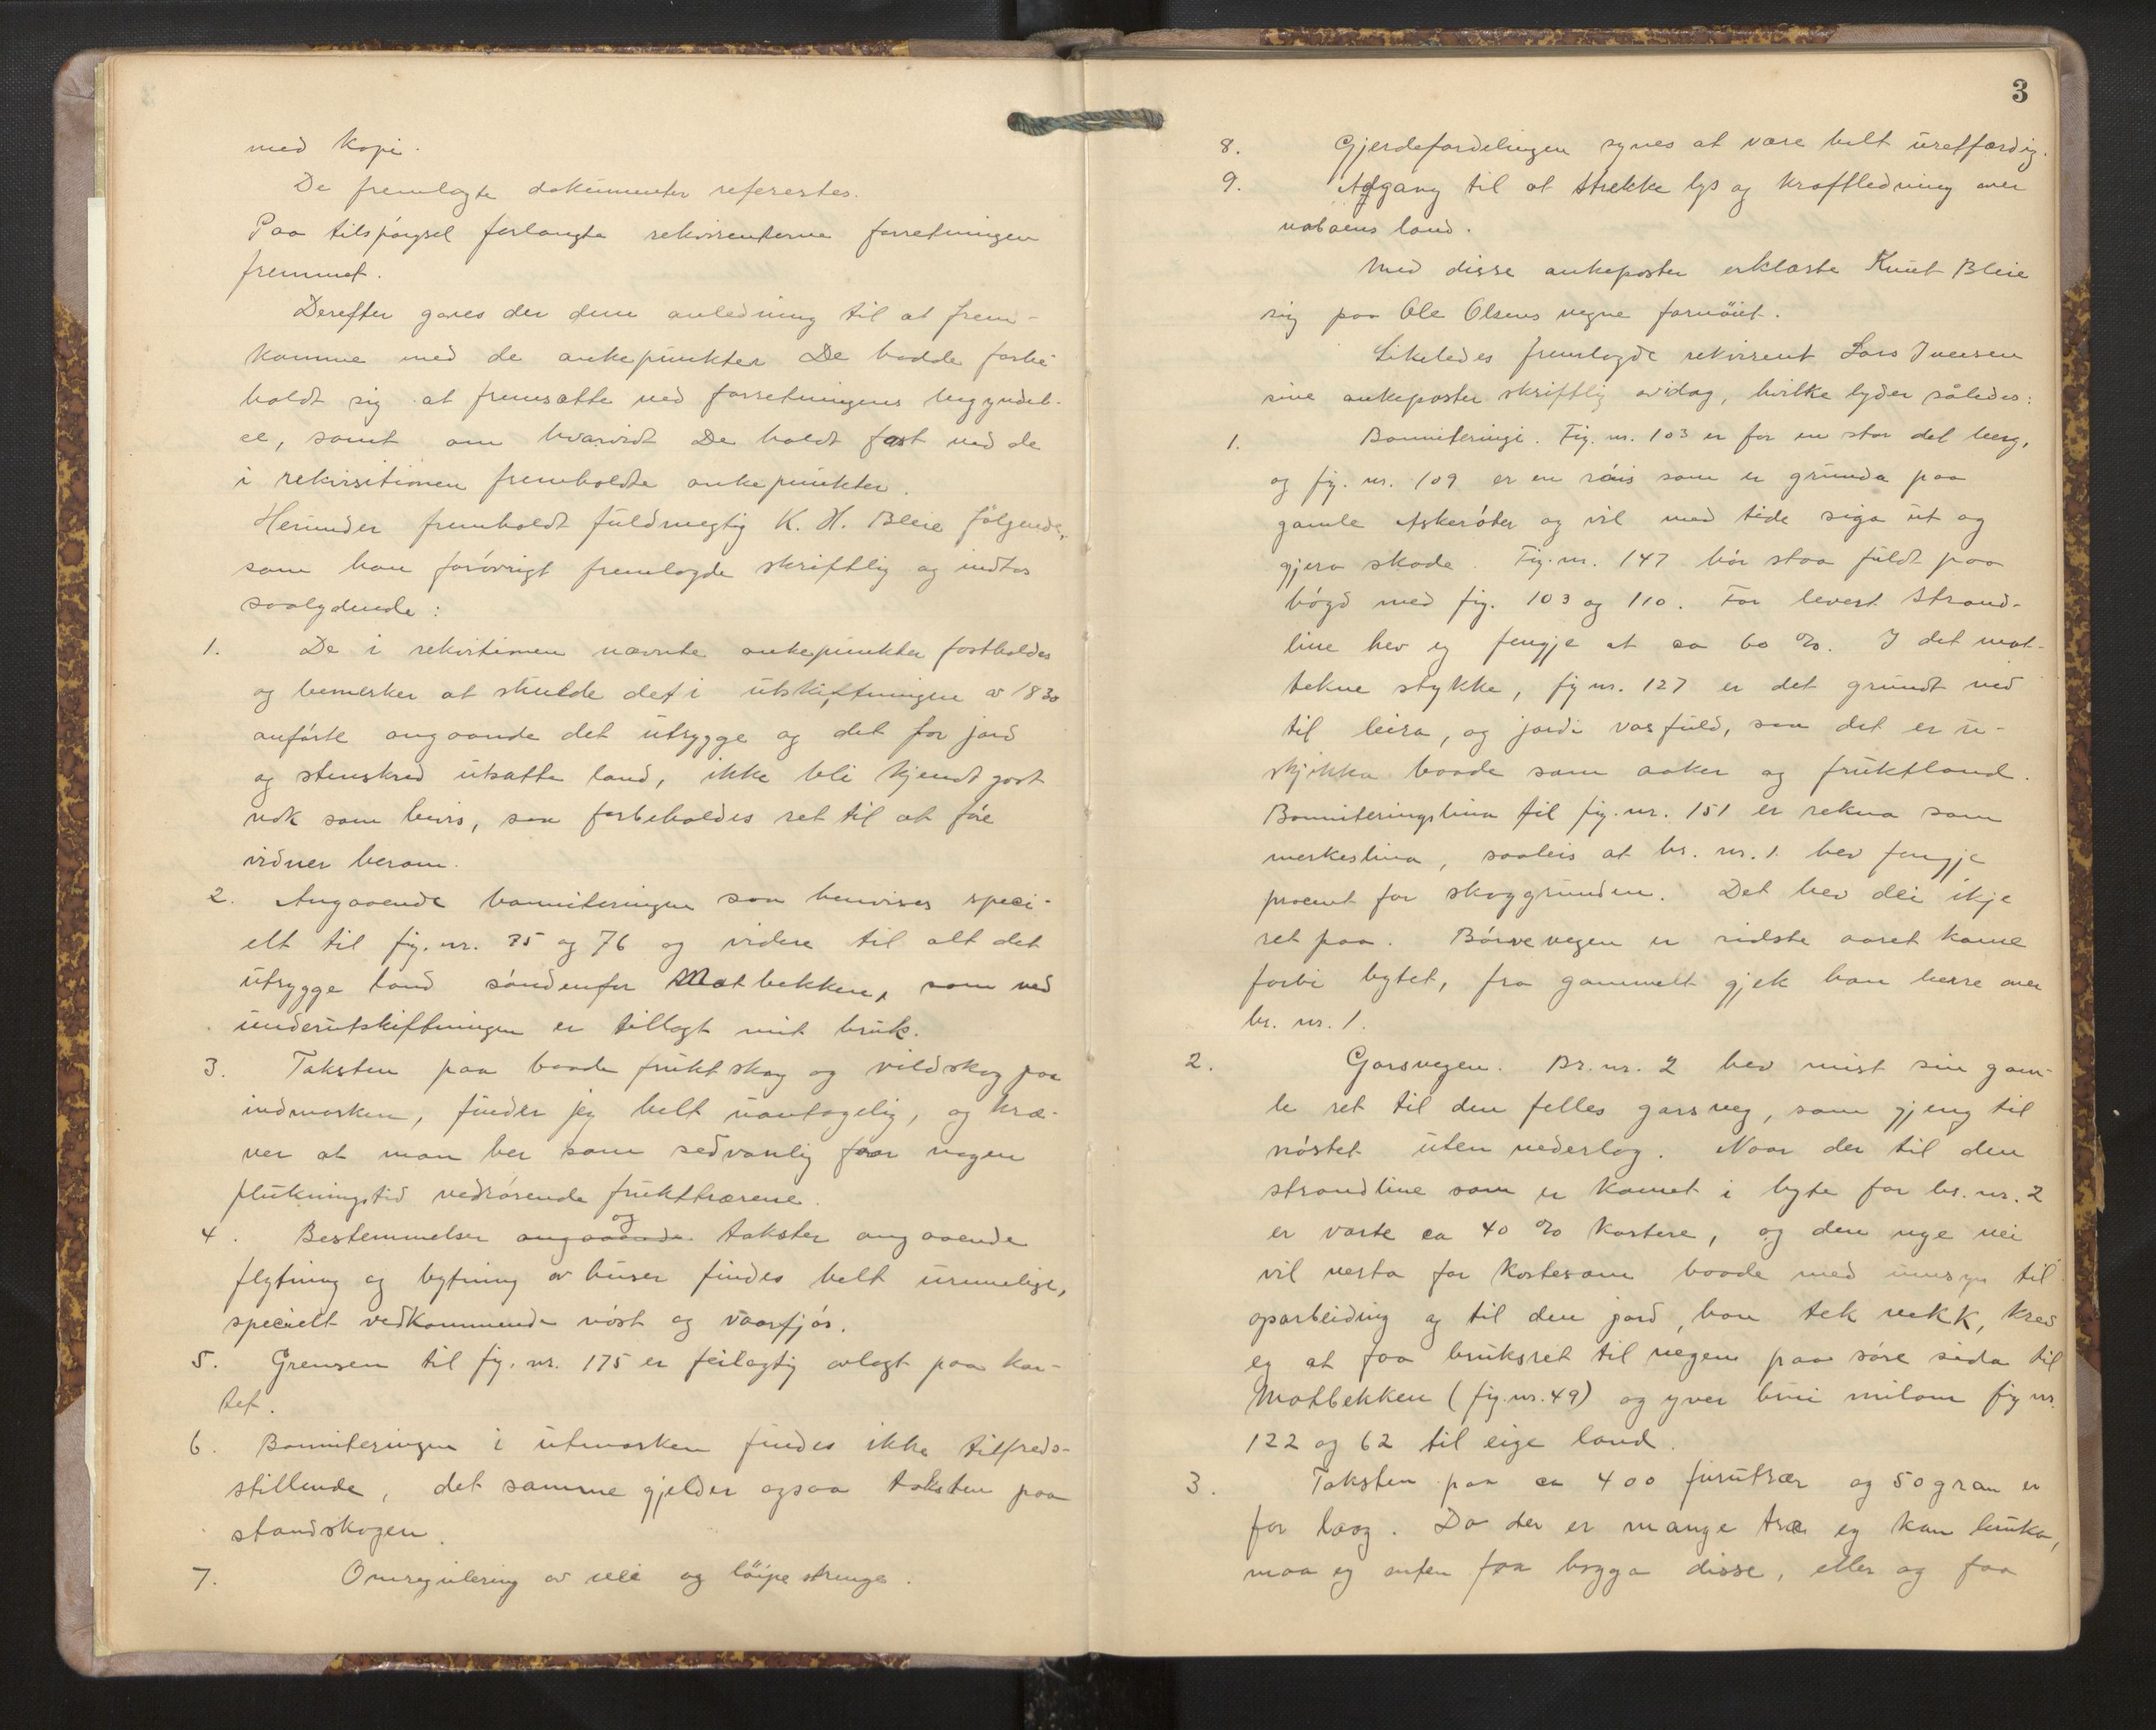 med Kopi.
De fremlagte dokumenter refereetes.
Paa tilspørgsel forlangte rekvirenterne forretningen
fremmet.
Derefter gaves der dem anledning til at frem-
komme med de ankepunkter De hadde forbe-
holdt sig at fremsætte ved forretningens begyndel-
se, samt om hvorvidt De holdt fast ved de
i rekvisitionen fremholdte ankepunkter.
Herunder fremholdt fuldmegtig K. H. Bleie følgende,
som han forøvrigt fremlagde skriftlig og indtas
saalydende:
1. De i rekvitionen nævnte ankepunkter fastholdes
og bemerker at skulde det i utskiftningen av 1830
anførte angaaende det utrygge og det for jord
og stenskred utsatte land, ikke bli kjendt godt
nok som bevis, saa forbeholdes ret til at føre
vidner herom.
2. Angaaende boniteringen saa henvises speci-
elt til fig. nr. 75 og 76 og videre til alt det
utrygge land søndenfor Matbekken, som ved
underutskiftningen er tillagt mit bruk.
3. Taksten paa baade fruktskog og vildskog paa
indmarken, finder jeg helt uantagelig, og kræ-
ver at man her som sedvanlig faar nogen
plukningstid vedrørende frukttrærene.
4. Bestemmelser angaaende og takster angaaende
flytning og bytning av huser findes helt urimelige,
specielt vedkommende nøst og vaarfjøs.
5. Grensen til fig. nr. 175 er feilagtig avlagt paa kar-
tet.
6. Bonniteringen i utmarken findes ikke tilfreds-
stillende, det samme gjelder ogsaa taksten paa
standskogen.
7. Omregulering av vei og løipestrenge.
3
8. Gjerdefordelingen synes at være helt uretfærdig.
9. Adgang til at strekke lys og kraftledning over
naboens land.
Med disse ankeposter erklærte Knut Bleie
sig paa Ole Olsens vegne fornøiet.
Likeledes fremlagde rekvirent Lars Iversen
sine ankeposter skriftlig avidag, hvilke lyder således:
1. Bonniteringi. Fig. nr. 103 er for en stor del berg,
og fig. nr. 109 er en røis som er grunda paa
gamle Askerøter og vil med tide siga ut og
gjera skade. Fig. nr. 147 bør staa fuldt paa
høgd med fig. 103 og 110. For levert strand-
line hev eg fengje at ca 60 %. I det mot-
tekne stykke, fig nr. 127 er det grundt ned
til leira, og jordi vasfuld, saa det er u-
skjikka baade som aaker og fruktland.
Bonniteringslina til fig. nr. 151 er rekna som
merkeslina, saaleis at br. nr. 1 hev fengje
procent for skoggrunden. Det hev dei ikje
ret paa. Børvevegen er sidste aaret kome
forbi bytet, fra gammelt gjek han berre over
br. nr. 1.
2. Garsvegen. Br. nr. 2 hev mist sin gam-
le ret til den felles garsveg, som gjeng til
nøstet uten vederlag. Naar der til den
strandline som er komet i byte for br. nr. 2
er vorte ca 40 % kortere, og den nye vei
vil verta for kostesam baade med umsyn til
oparbeiding og til den jord, han tek vekk, krev
eg at faa bruksret til vegen paa søre sida til
Matbekken (fig. nr. 49) og yver brui milom fig nr.
122 og 62 til eige land.
3. Taksten paa ca 400 furutrær og 50 gran er
for laag. Da der er mange træ eg kan bruka,
maa eg enten faa hogga disse, eller og faa